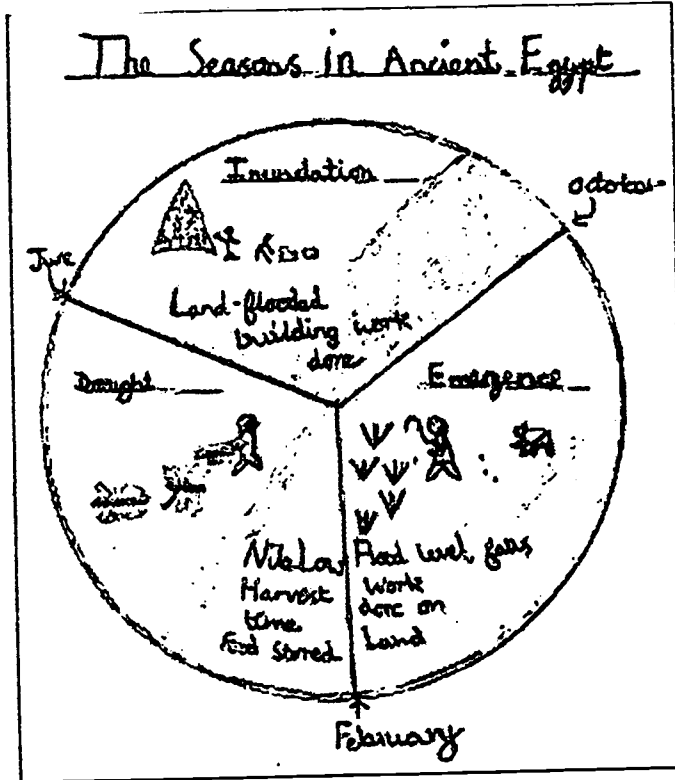 The Seasons in Ancient Egypt
Inundation
October
June
Land flooded
building work
done
Drought
Emergence
Nile Low
Harvest
time
Food storred
Flood level falls
Work
done on
Land
February